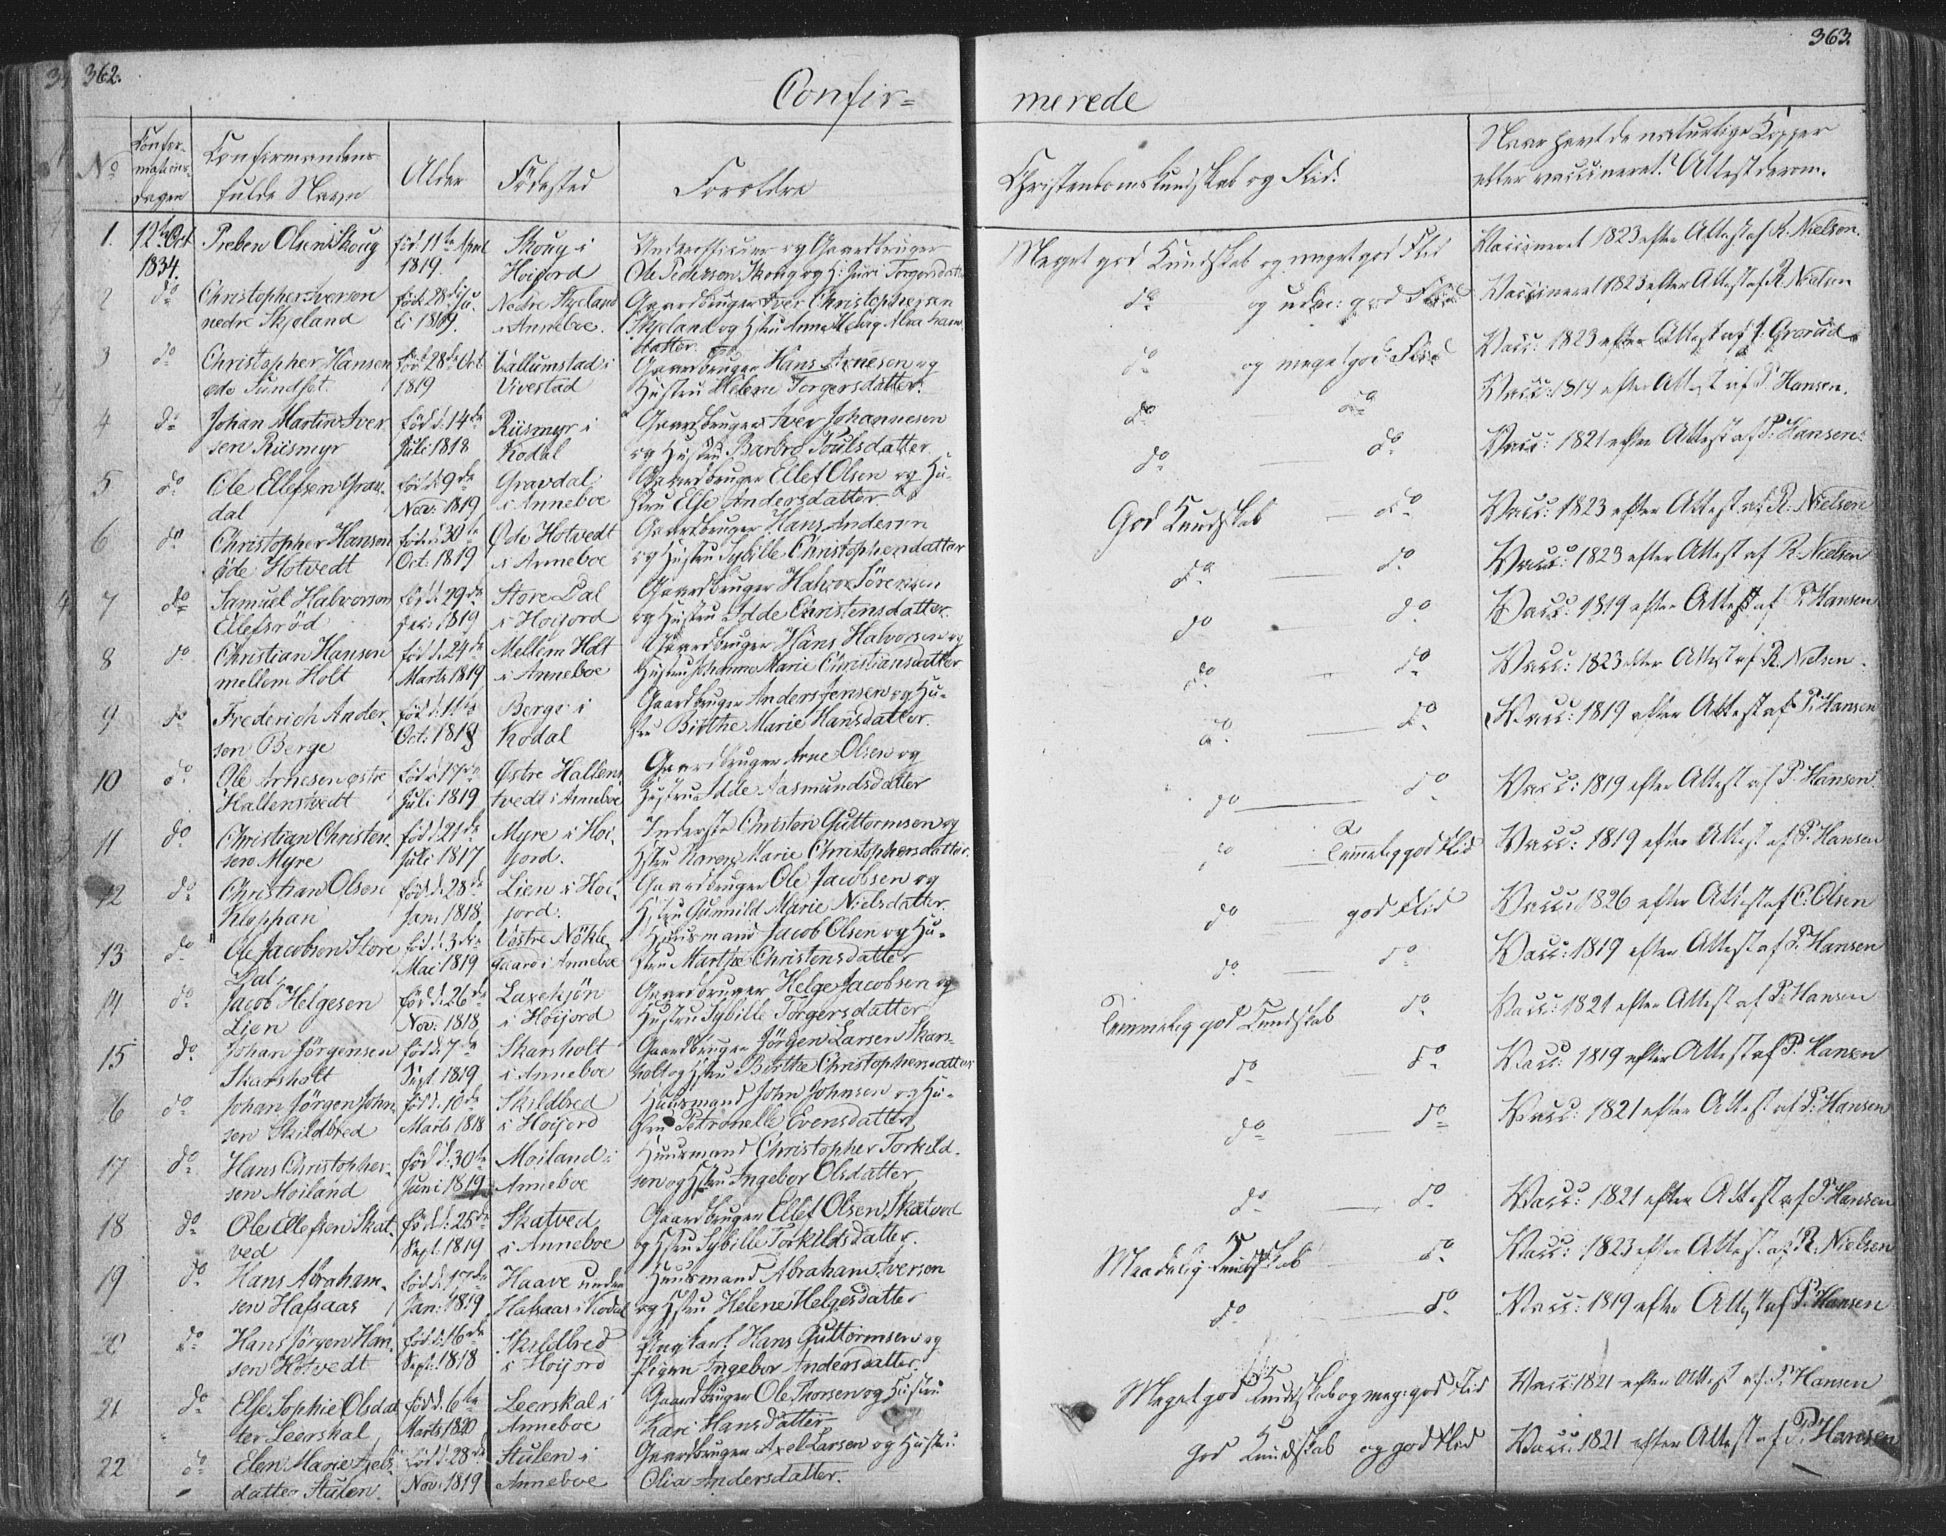 362.
363.
Confir=
merede
No
Confir-
mations-
dagen
Confirmandens
fulde Navn
Alder
Födested
Forældre
Christendomskundskab og Flid.
Naar havt de naturlige Kopper
eller vaccineret? Attest derom.
1. 12te Oct Preben Olsen Skoug född. 11te April Skoug i Underofficier og Gaardbruger
1834. 1819. Hoijord Ole Pedersen Skoug og H. Guri Torgersdatter
Meget god Kundskab og meget god Flid Vaccineret 1823 efter Attest af R. Nielsen.
2 do Christopher Iversen född. 28de Ju- Nedre Skjeland Gaardbruger Iver Christophersen
nedre Skjeland li 1819. i Anneboe. Skjeland og Hstru Anne Helvig Abraham
datter.
do og udm: god Flid Vaccineret 1823 efter Attest af R. Nielsen
3 do Christopher Hansen född. 28de Oct Vallumstad i Gaardbruger Hans Arnesen og
øde Sundset. 1819 Vivestad Hustru Helene Torgersdatter.
do og meget god Flid Vacc: 1823 efter Attest af J. Grorud
4 do Johan Martin Iver föd d. 14de Riismyr i Gaardbruger Iver Johannesen
sen Riismyr Juli 1818 Kodal og Hustru Barbro Poulsdatter
do do Vacc: 1819 efter Attest af P. Hansen.
5 do Ole Ellefsen Grav- föd d. 9de Gravdal Gaardbruger Ellef Olsen og Hu-
dal Nov: 1819 i Anneboe stru Else Andersdatter
do do Vacc: 1821 efter Attest af P. Hansen.
6 do Christopher Hansen föd d. 30te Øde Hotvedt Gaardbruger Hans Andersen
øde Hotvedt Oct. 1819 i Anneboe og Hustru Sybille Christophersdatter
God Kundskab do Vacc: 1823 efter Attest af R. Nielsen
7 do Samuel Halvorsen föd d. 29de Store Dal Gaardbruger Halvor Sörensen
Ellefsröd Dec: 1819 i Hoijord og Hustru Idde Christensdatter
do do Vacc: 1823 efter Attest af R. Nielsen
8 do Christian Hansen föd d. 29de Mellem Holt Gaardbruger Hans Halvorsen og
mellem Holt Marts 1819 i Anneboe Hustru Johanne Marie Christiansdatter
do do Vacc: 1819 efter Attest af P. Hansen
9 do Frederich Ander- föd d. 11te Berge i Gaardbruger Anders Jensen og Hu-
sen Berge Oct: 1818 Kodal stru Birthe Marie Hansdatter.
do do Vacc: 1823 efter Attest af R. Nielsen.
10 do Ole Arnesen østre föd d. 17de Østre Hallens Gaardbruger Arne Olsen og
Hallenstvedt Juli 1819 tvedt i Anneboe Hustru Idde Aasmundsdatter
do do Vacc: 1819 efter Attest af P. Hansen
11 do Christian Christen- föd d. 21de Myre i Hoi- Inderste Christen Guttormsen og
sen Myre Juli 1817 jord. Hstru Karen Marie Christophersdatter.
do do Vacc: 1819 efter Attest af P. Hansen
12 do Christian Olsen föd d. 28de Lien i Hoi- Gaardbruger Ole Jacobsen og
Klophan Jan: 1818 jord. Hstru Gunnild Marie Nielsdatter.
do Temmelig god Flid Vacc: 1819 efter Attest af P. Hansen
13 do Ole Jacobsen Store föd d. 3die Vestre Nökle- Huusmand Jacob Olsen og Hu-
Dal. Mai 1819 gaard i Anneboe stru Marthe Christensdatter
do god Flid Vacc: 1826 efter Attest af C. Olsen
14 do Jacob Helgesen föd d. 26de Laxekjön Gaardbruger Helge Jacobsen og
Lien Nov: 1818 i Hoijord Hustru Sybille Torgersdatter
do do Vacc: 1819 efter Attest af P. Hansen
15 do Johan Jörgensen föd d. 7de Skarsholt Gaardbruger Jörgen Larsen Skars-
Skarsholt Sept 1819 i Anneboe holt og Hstru Birthe Christophersdatter
Temmelig god Kundskab do Vacc: 1821 efter Attest af P. Hansen
16 do Johan Jörgen John- föd d. 10de Skildbred Huusmand John Johnsen og Hu-
sen Skildbred Marts 1818 i Hoijord stru Petronelle Evensdatter
do do Vacc: 1819 efter Attest af P. Hansen
17 do Hans Christopher- föd d. 30te Moiland i Huusmand Christopher Torkild-
sen Moiland Juni 1819 Anneboe sen og Hstru Ingebor Olsdatter
do do Vacc: 1821 efter Attest af P. Hansen
18 do Ole Ellefsen Skat- föd d. 25de Skatved Gaardbruger Ellef Olsen Skatved
ved Sept: 1819 i Anneboe og Hstru Sybille Torkildsdatter.
do do Vacc: 1821 efter Attest af P. Hansen
19 do Hans Abraham- föd d. 17de Haave under Huusmand Abraham Iversen
sen Hafsaas Jan: 1819 Hafsaas i Kodal og Hstru Helene Helgesdatter
Maadelig Kundskab do Vacc: 1823 efter Attest af R. Nielsen
20 do Hans Jörgen Han- föd d. 16de Skildbred Ungkarl Hans Guttormsen og
sen Hotvedt Sept: 1818 i Hoijord Pigen Ingebor Andersdatter.
do do Vacc: 1819 efter Attest af P. Hansen
21 do Else Sophie Olsdat föd d. 6te Leerskal i Gaardbruger Ole Thorsen og Hustru
ter Leerskal Marts 1820 Anneboe Kari Hansdatter
Meget god Kundskab og meg: god Flid Vacc: 1821 efter Attest af P. Hansen
22 do Elen Marie Axels- föd d. 28de Stulen i Gaardbruger Axel Larsen og Hustru
datter Stulen. Nov: 1819 Anneboe Olia Andersdatter.
God Kundskab og god Flid Vacc: 1821 efter Attest af P. Hansen